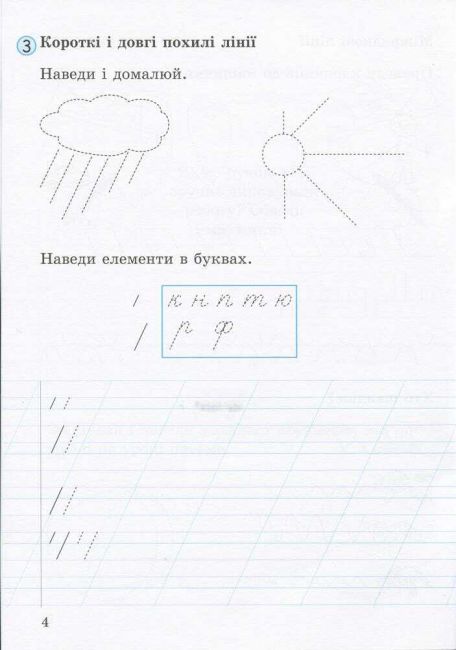 3 Короткі і довгі похилі лінії
Наведи і домалюй.
Наведи елементи в буквах.
к н п т ю
р ф
4